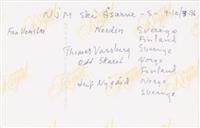 NJM Skei Åsarne - 5 - 9-10/3-96
Fra Venstre Norden Sverige
Finland
Thomas Vassberg Sverige
Odd Skaret Norge
Finland
Leif Nygård Norge
Sverige